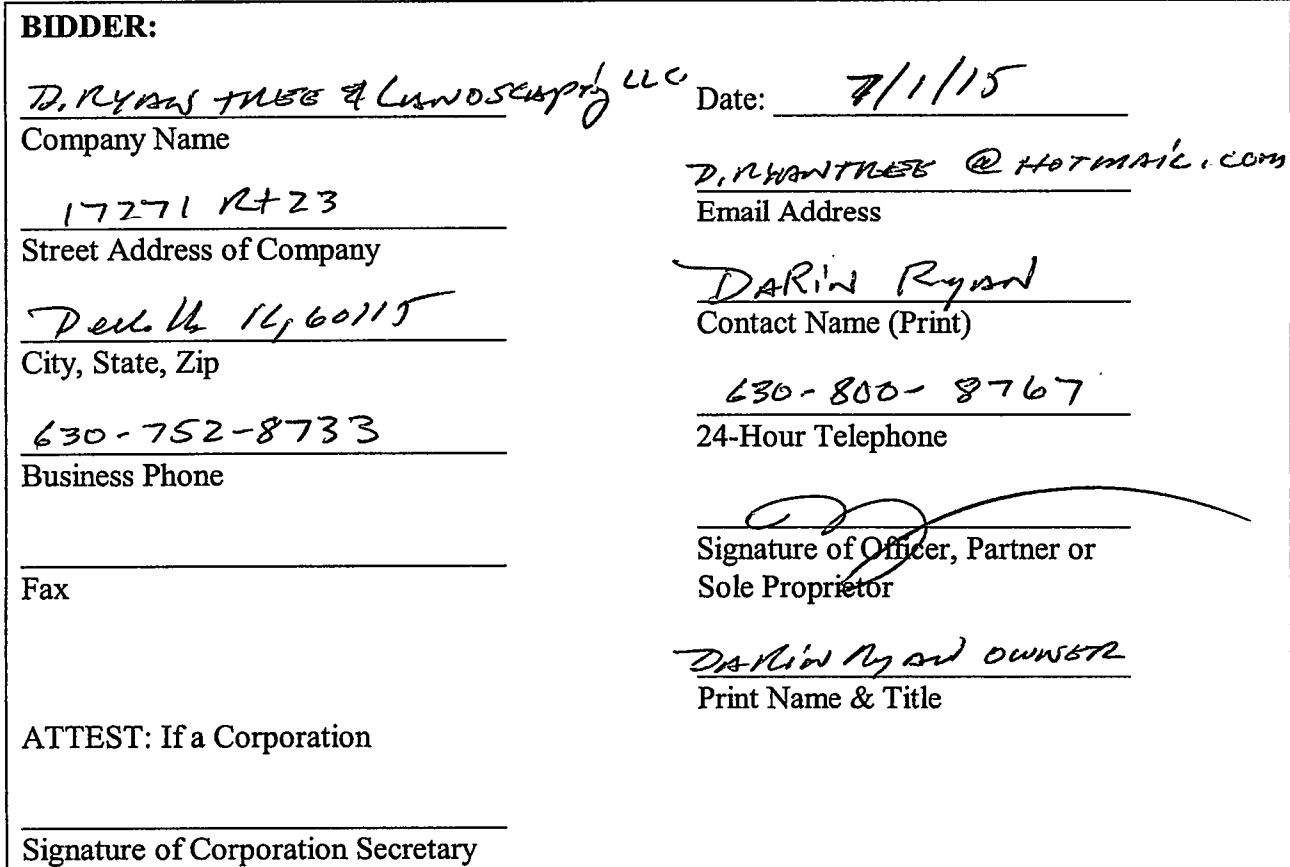 BIDDER:
D. RYAN TREE & LANDSCAPING LLC
Company Name
17271 Rt 23
Street Address of Company
DeKalb IL, 60115
City, State, Zip
630-752-8733
Business Phone
Fax
ATTEST: If a Corporation
Signature of Corporation Secretary
Date: 7/1/15
D.RYANTREE @ HOTMAIL.COM
Email Address
DARIN RYAN
Contact Name (Print)
630-800-8767
24-Hour Telephone
Signature of Officer, Partner or
Sole Proprietor
DARIN RYAN OWNER
Print Name & Title